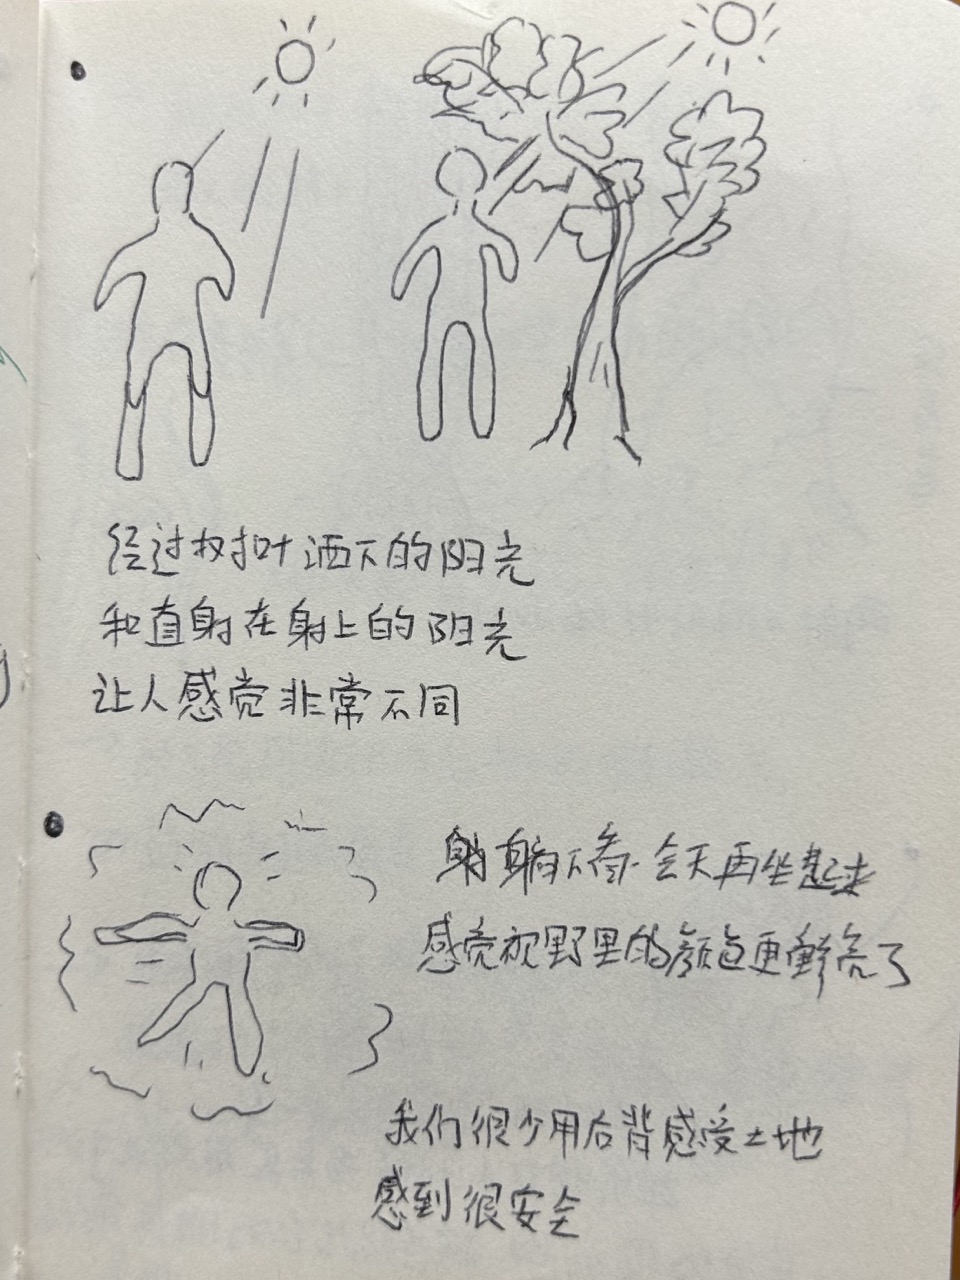 经过树叶洒下的阳光
和直射在射上的阳光
让人感觉非常不同
躺下看会天再坐起来
感觉视野里的颜色更鲜亮了
我们很少用后背感受土地
感到很安全